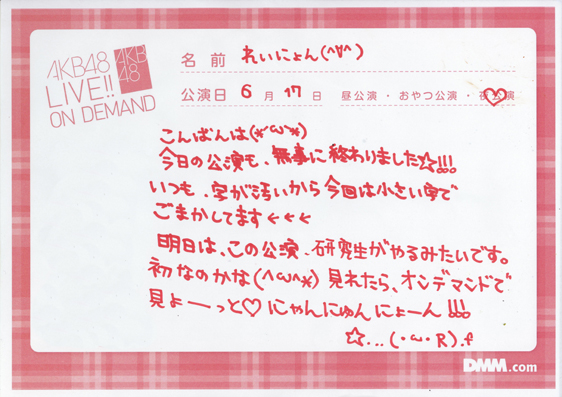 AKB48
LIVE!!
ON DEMAND
AKB
48
名前 れいにょん(^∀^)
公演日 6月17日 昼公演・おやつ公演・夜公演
こんばんは(*´ω`*)
今日の公演も、無事に終わりました☆!!!
いつも、字が汚いから今回は小さい字で
ごまかしてます←←←
明日は、この公演、研究生がやるみたいです。
初なのかな(^ω^*)見れたら、オンデマンドで
見よーーっと♡にゃんにゅんにょーん!!!
☆...(・ω・R).f
DMM.com